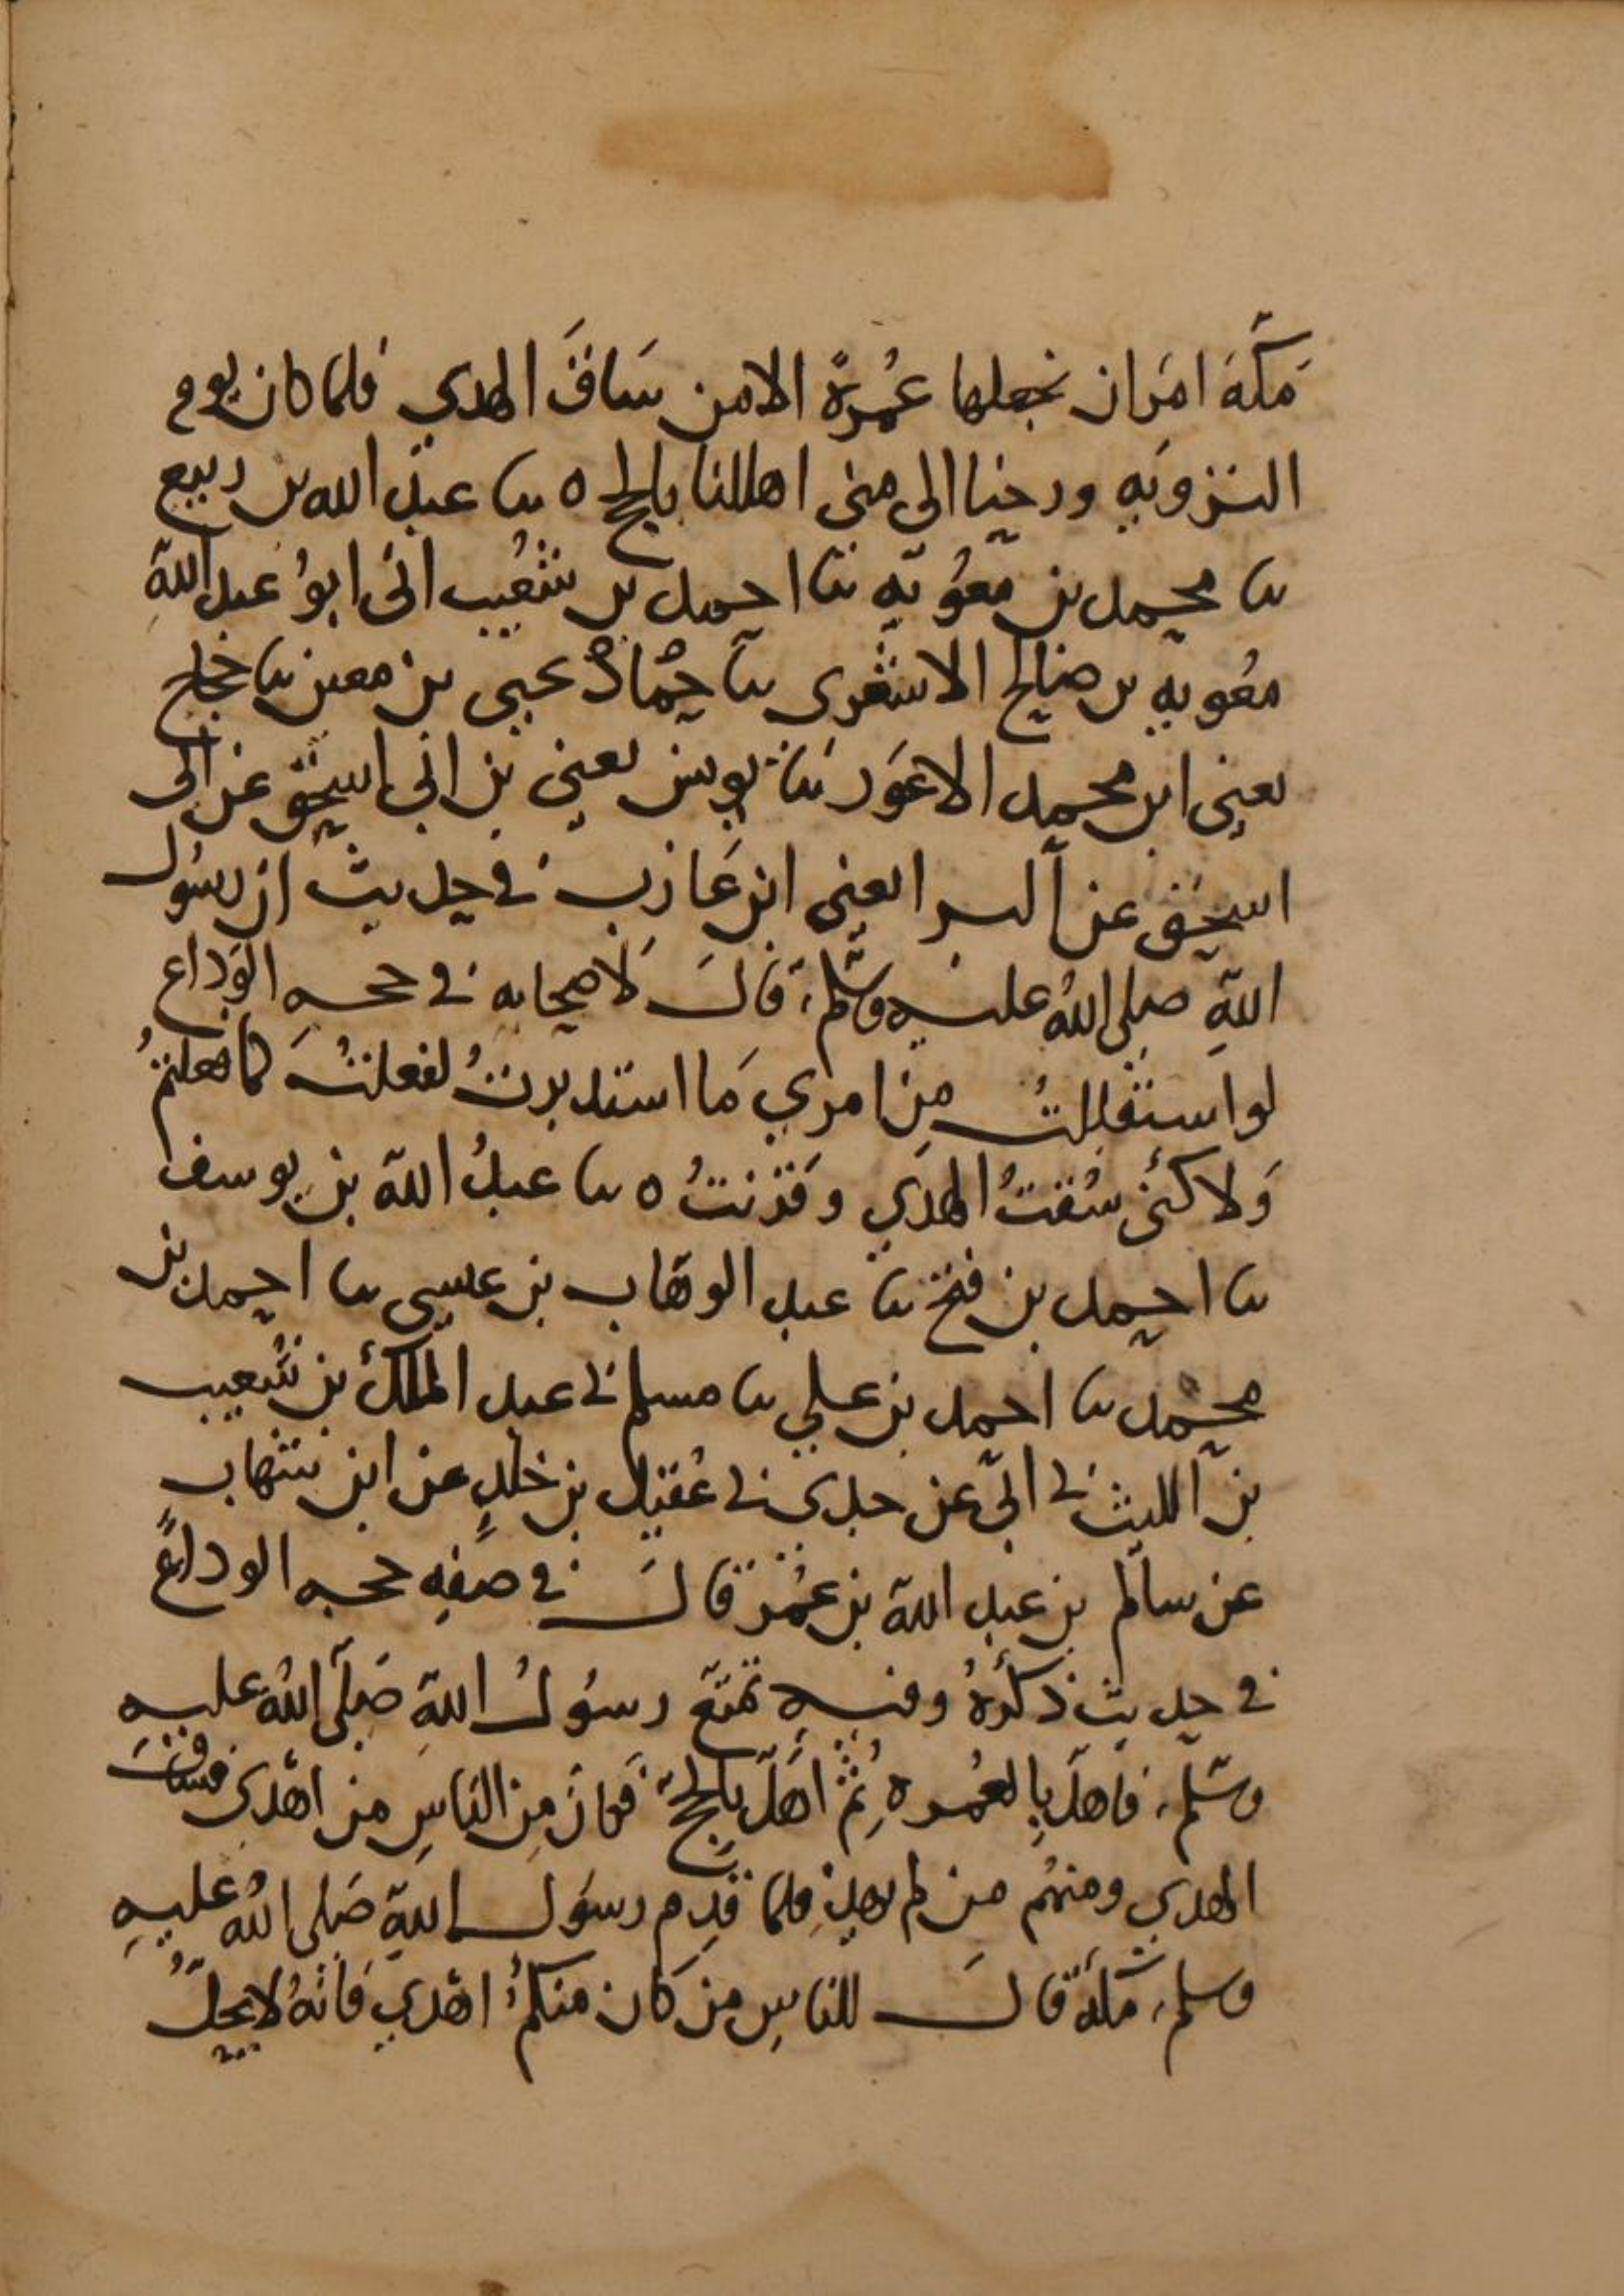 مَكّةَ امَرَنا ان نجعلها عُمرةً الا من سَاقَ الهدي فلما كان يوم
التروَيه ورحنا الى منى اهللنا بالحج ٥ نا عبد الله بن ربيع
نا محمد بن معوُيه نا احمد بن شعُيب انى ابوُ عبد اللهِ
معُويه بن صالح الاشعرى نا حجاد يحيى بن معين نا حجاج
يعنى ابن محمد الاعوَر نا يونس يعني بن ابي اسحق عن ابى
اسحق عن البرا يعنى ابن عَازب في حديث ان رسُول
اللهِ صلى اللهُ عليه وسَّلم، قالَ لاَصحابه في حجه الوَداع
لو استقبلتُ مِن امري مَا استدبرتُ لفعلتُ كما فعلتمُ
وَلاكنى سُقتُ الهدَي وَقرنتُ ٥ نا عبدُ الله بن يوسف
نا احمد بن فتح نا عبد الوهّاب بن عيسى نا احمد بن
محمد نا احمد بن علي نا مسلم ني عبد الملك بن شُعيب
بن الليث ني ابي عن جدي ني عُقيل بن خلدٍ عن ابن شهاب
عن سالم بن عبد الله بن عمُر قالَ في صفِه حجه الوداع
في حديث ذكرُهُ وفيه تمتعّ رسُولُ اللهِ صَلّى اللهُ عليه
وسَّلم، فاهلّ بِالعُمره ثُمّ اهَلّ بِالحجّ فكانَ مِن الناسِ من اهدَى فساقَ
الهدي ومنهُم من لم يهدِ فلما قدِم رسوُل اللهِ صَلى اللهُ عليهِ
وسلم، مكّةَ قالَ للناسِ من كان منكمُ اهدي فانهُ لا يحلُّ